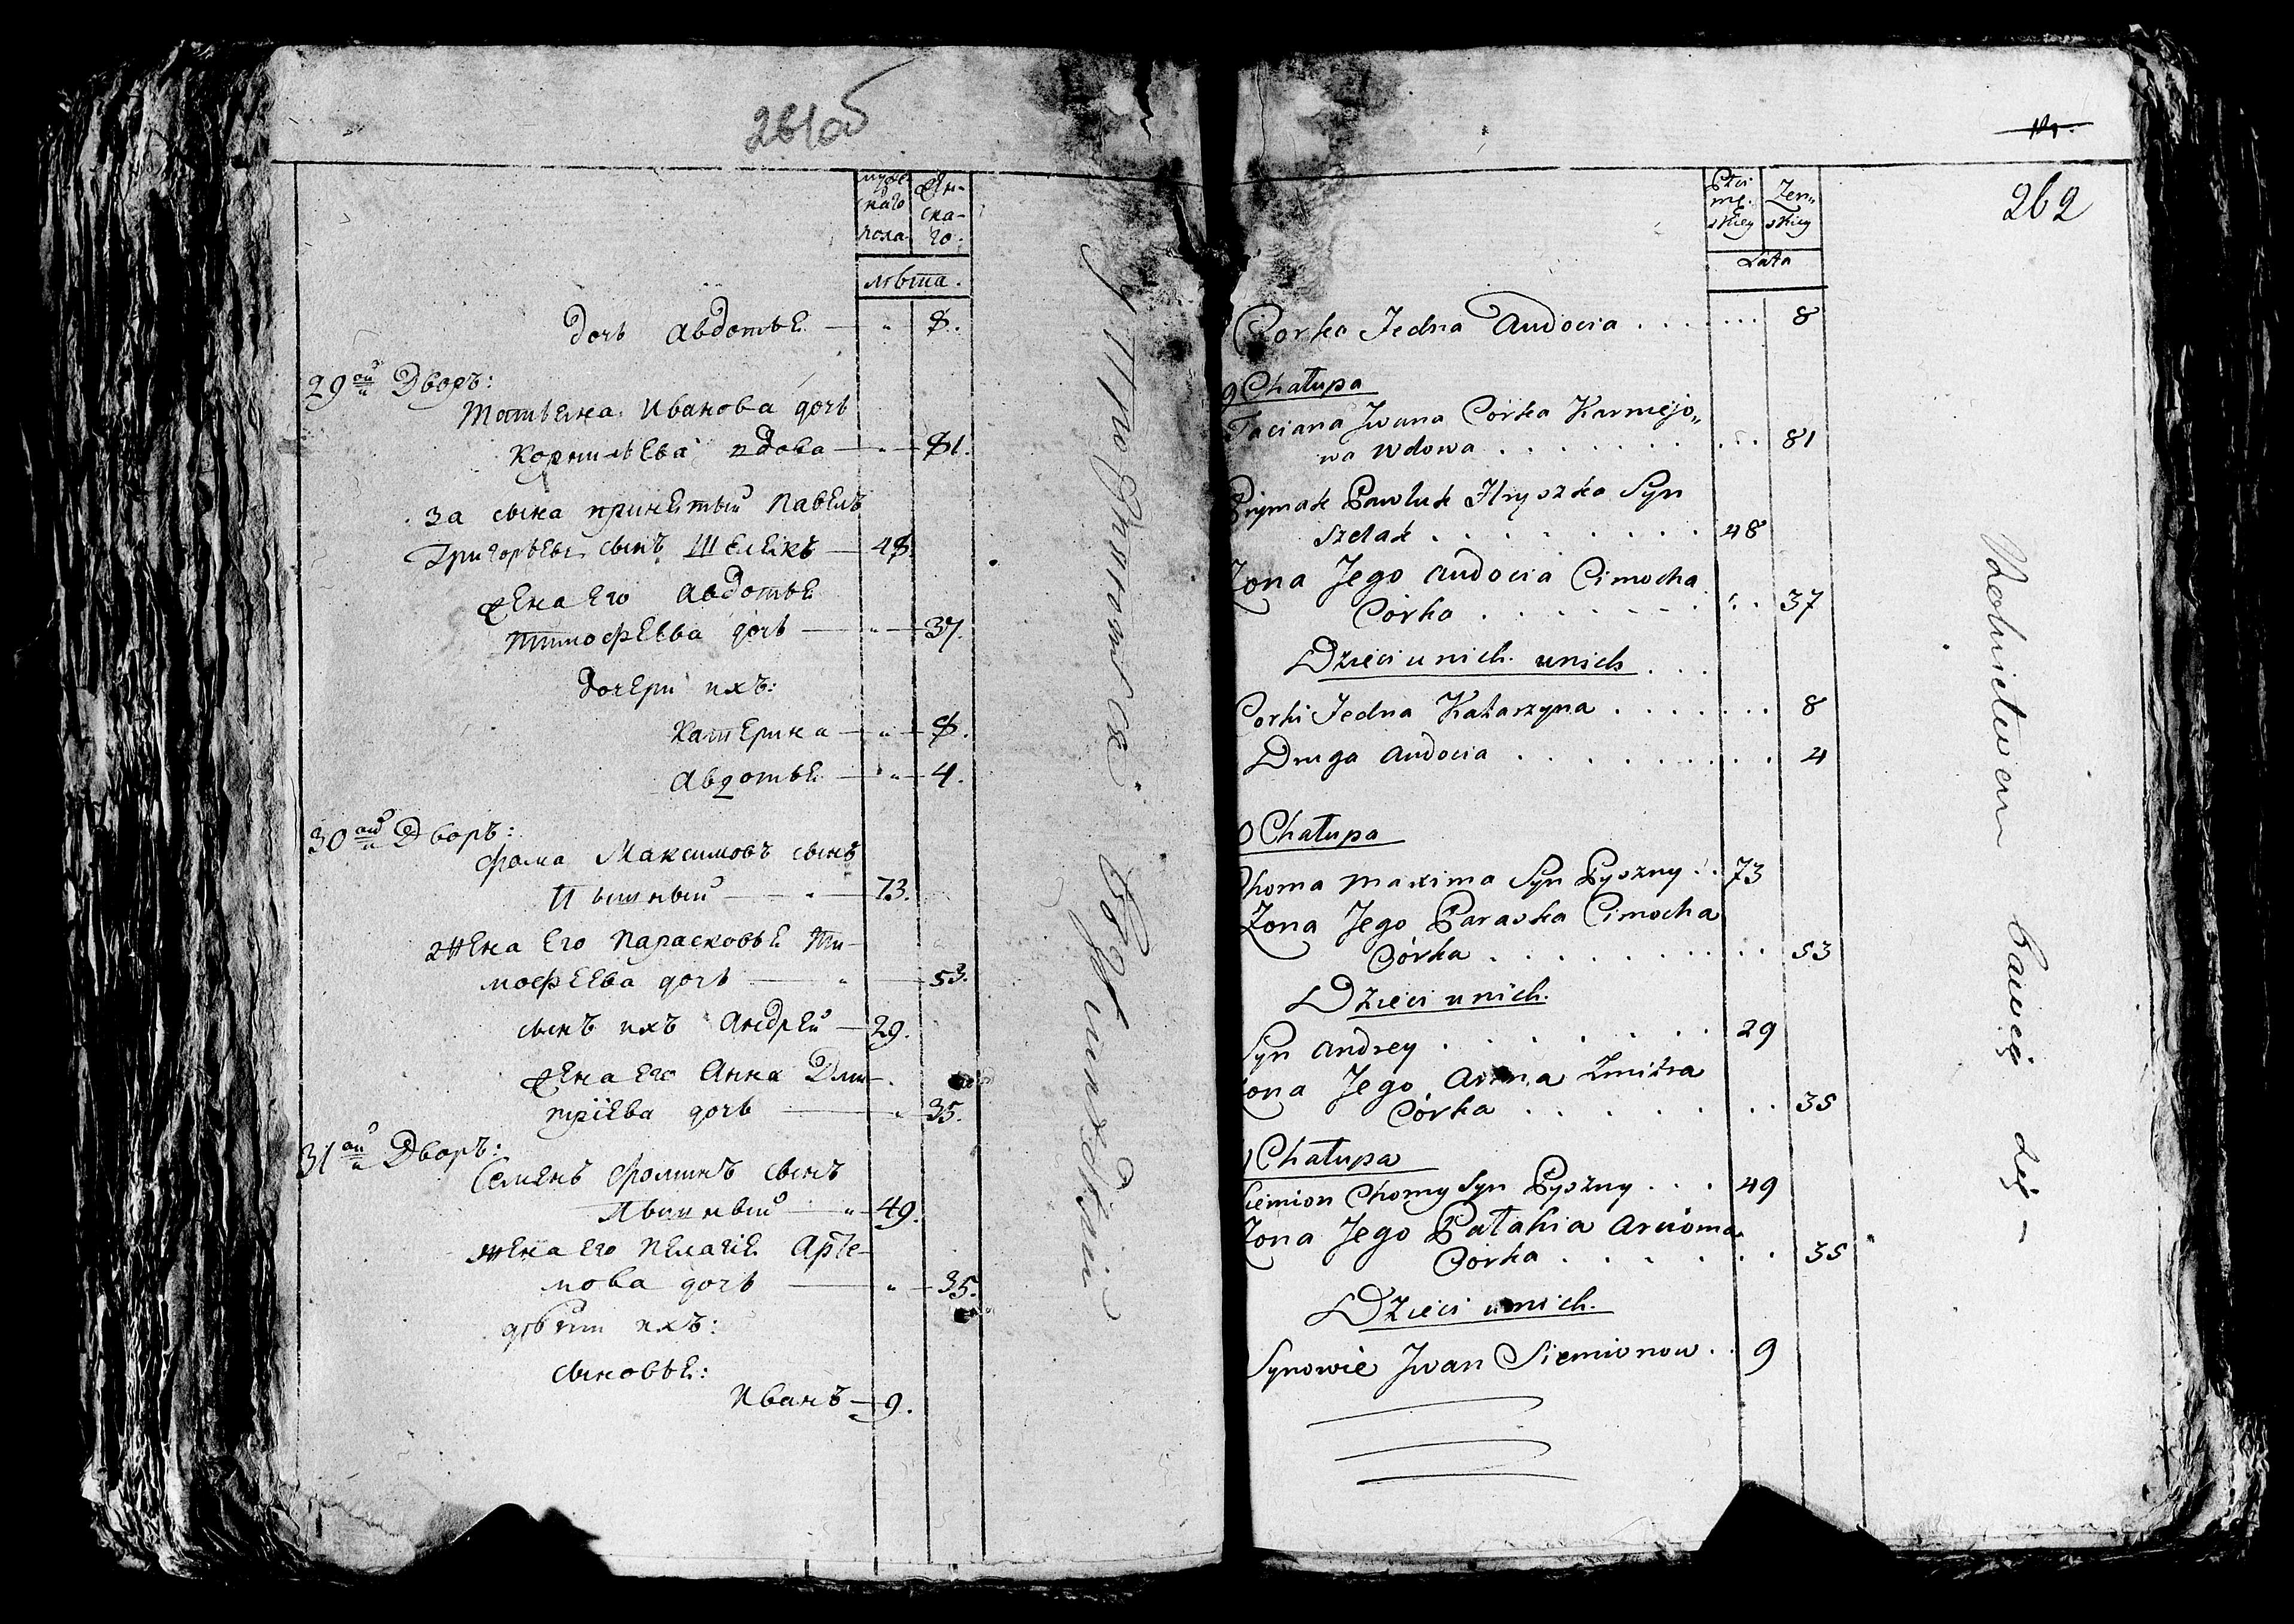 261об
муже-
скаго
пола.
жен-
ска-
го.
лѣта.
дочь Авдотья — " — 8.
29ой Дворъ:
Татьяна Иванова дочь
Корнильева вдова — " — 81.
за сына принятый Павелъ
Григорьевъ сынъ Шелякъ — 48.
жена его Авдотья
Тимофеева дочь — " — 37.
дочери ихъ:
Катерина — " — 8.
Авдотья — " — 4.
30ой Дворъ:
Фома Максимовъ сынъ
Пышный — 73.
жена его Парасковья Ти-
мофеева дочь — " — 53.
сынъ ихъ Андрей — 29.
жена его Анна Дми-
тріева дочь — " — 35.
31ой Дворъ:
Семенъ Фоминъ сынъ
Пышный — " — 49.
жена его Пелагія Арте-
мова дочь — " — 35.
дѣти ихъ:
сыновья:
Иванъ — 9.
262
Płci
mę-
skiey
Zen„
skiey
Lata
Corka Jedna Audocia . . . . . . 8
9 Chałupa
Taciana Jwana Córka Karniejo„
wa wdowa . . . . . . . . . 81
Pryimak Pawluk Hryszka Syn
Szelak . . . . . . . . . 48
Zona Jego Audocia Cimocha
Córka . . . . . . . . . 37
Dzieci u nich. u nich . . .
Corki Jedna Katarzyna . . . . . . . 8
Druga Audocia . . . . . . . . . . 4
0 Chałupa
Choma Maxima Syn Pyszny . . 73
Zona Jego Paraska Cimocha
Córka . . . . . . . . . . 53
Dzieci u nich.
Syn Andrey . . . . . . . 29
Zona Jego Anna Zmitra
Córka . . . . . . . . 35
1 Chałupa
Siemion Chomy Syn Pyszny . . . 49
Zona Jego Pałahia Arcioma
Córka . . . . . . . 35
Dzieci u nich.
Synowie Jwan Siemionow . . 9